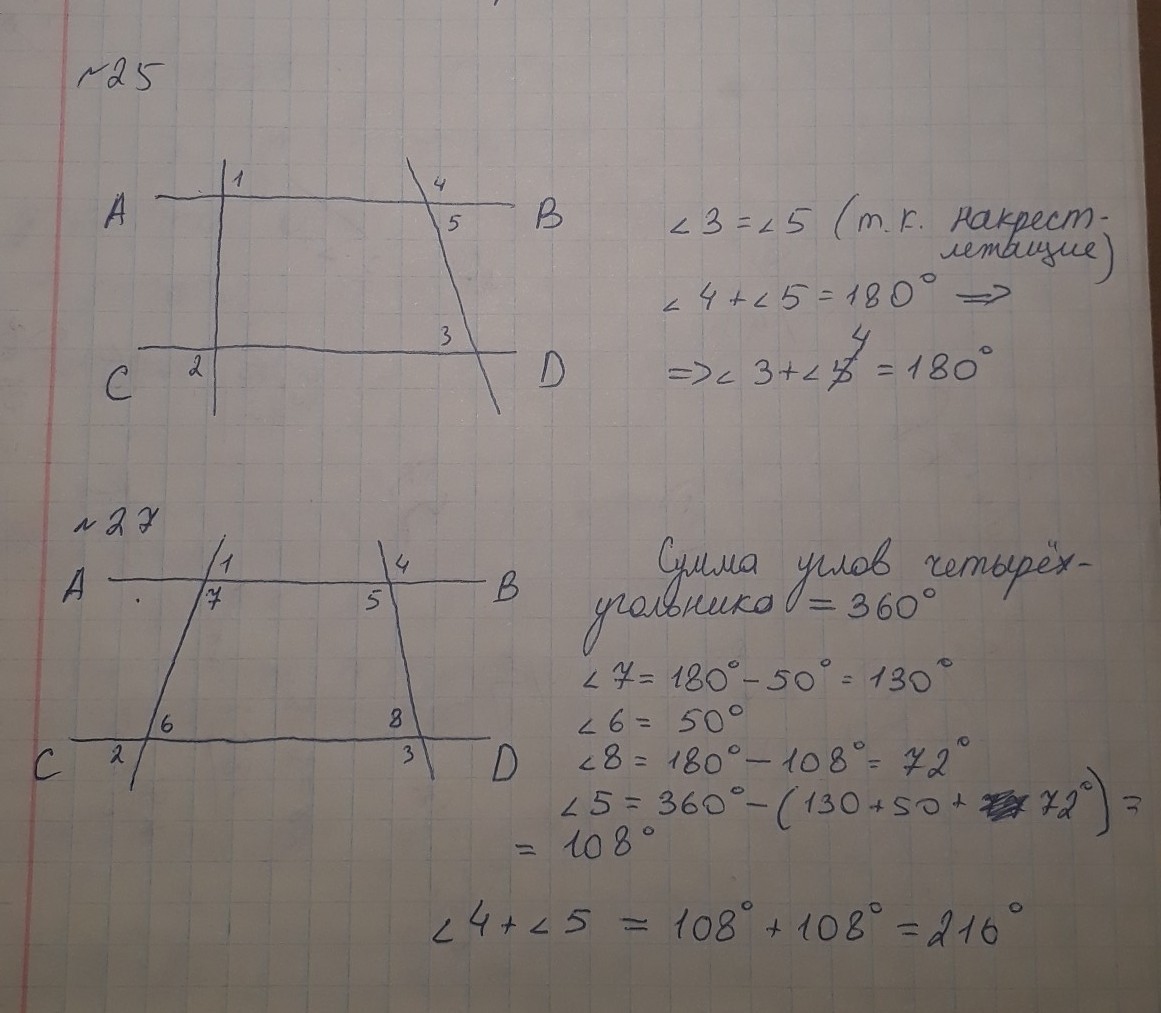 ~25
1 4
A B
5
3
C 2 D
∠3=∠5 (т.к. накрест-
летащие)
∠4+∠5=180° =>
4
=>∠3+∠5=180°
~27
1 4
A B
7 5
6 8
C 2 3 D
Сумма углов четырёх-
угольника = 360°
∠7= 180°-50°=130°
∠6= 50°
∠8= 180°-108°= 72°
∠5=360°-(130+50+ 72°)=
= 108°
∠4+∠5 = 108°+108°=216°